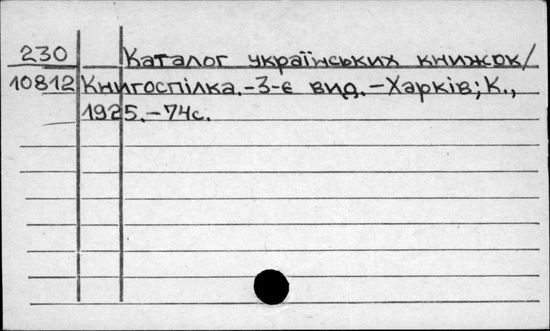 230 Каталог українських книжок/
10812 Книгоспілка.-3-є вид.-Харків; К.,
1925.-74с.